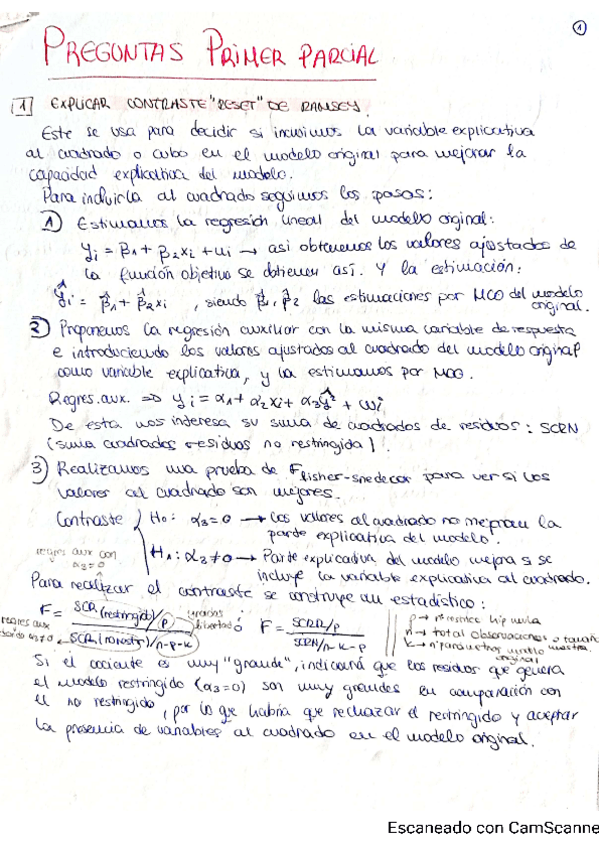 1
PREGUNTAS PRIMER PARCIAL
1 EXPLICAR CONTRASTE "RESET" DE RAMSEY.
Este se usa para decidir si incluimos la variable explicativa
al cuadrado o cubo en el modelo original para mejorar la
capacidad explicativa del modelo.
Para incluirla al cuadrado seguimos los pasos:
1) Estimamos la regresión lineal del modelo original:
yi = β1 + β2xi + ui → así obtenemos los valores ajustados de
la función objetivo se obtienen así. Y la estimación:
ŷi = β̂1 + β̂2xi , siendo β̂1, β̂2 las estimaciones por MCO del modelo
original.
2) Proponemos la regresión auxiliar con la misma variable de respuesta
e introduciendo los valores ajustados al cuadrado del modelo original
como variable explicativa, y la estimamos por MCO.
Regres. aux. ⇒ yi = α1 + α2xi + α3ŷ² + ωi
De esta nos interesa su suma de cuadrados de residuos: SCRN
(suma cuadrados residuos no restringida).
3) Realizamos una prueba de Fisher-Snedecor para ver si los
valores al cuadrado son mejores.
Contraste H0: α3 = 0 → Los valores al cuadrado no mejoran la
parte explicativa del modelo.
regres aux con
α3 = 0
HA: α3 ≠ 0 → Parte explicativa del modelo mejora si se
incluye la variable explicativa al cuadrado.
Para realizar el contraste se construye un estadístico:
F = SCR(restringido)/p / SCR(norestr)/n-p-k
libertad ó F = SCRR/p / SCRN/n-k-p
regres aux
α3 ≠ 0
p →
n → total observaciones o tamaño muestra
k → nº parámetros modelo
original
Si el cociente es muy "grande", indicará que los residuos que genera
el modelo restringido (α3=0) son muy grandes en comparación con
el no restringido, por lo que habría que rechazar el restringido y aceptar
la presencia de variables al cuadrado en el modelo original.
Escaneado con CamScanne